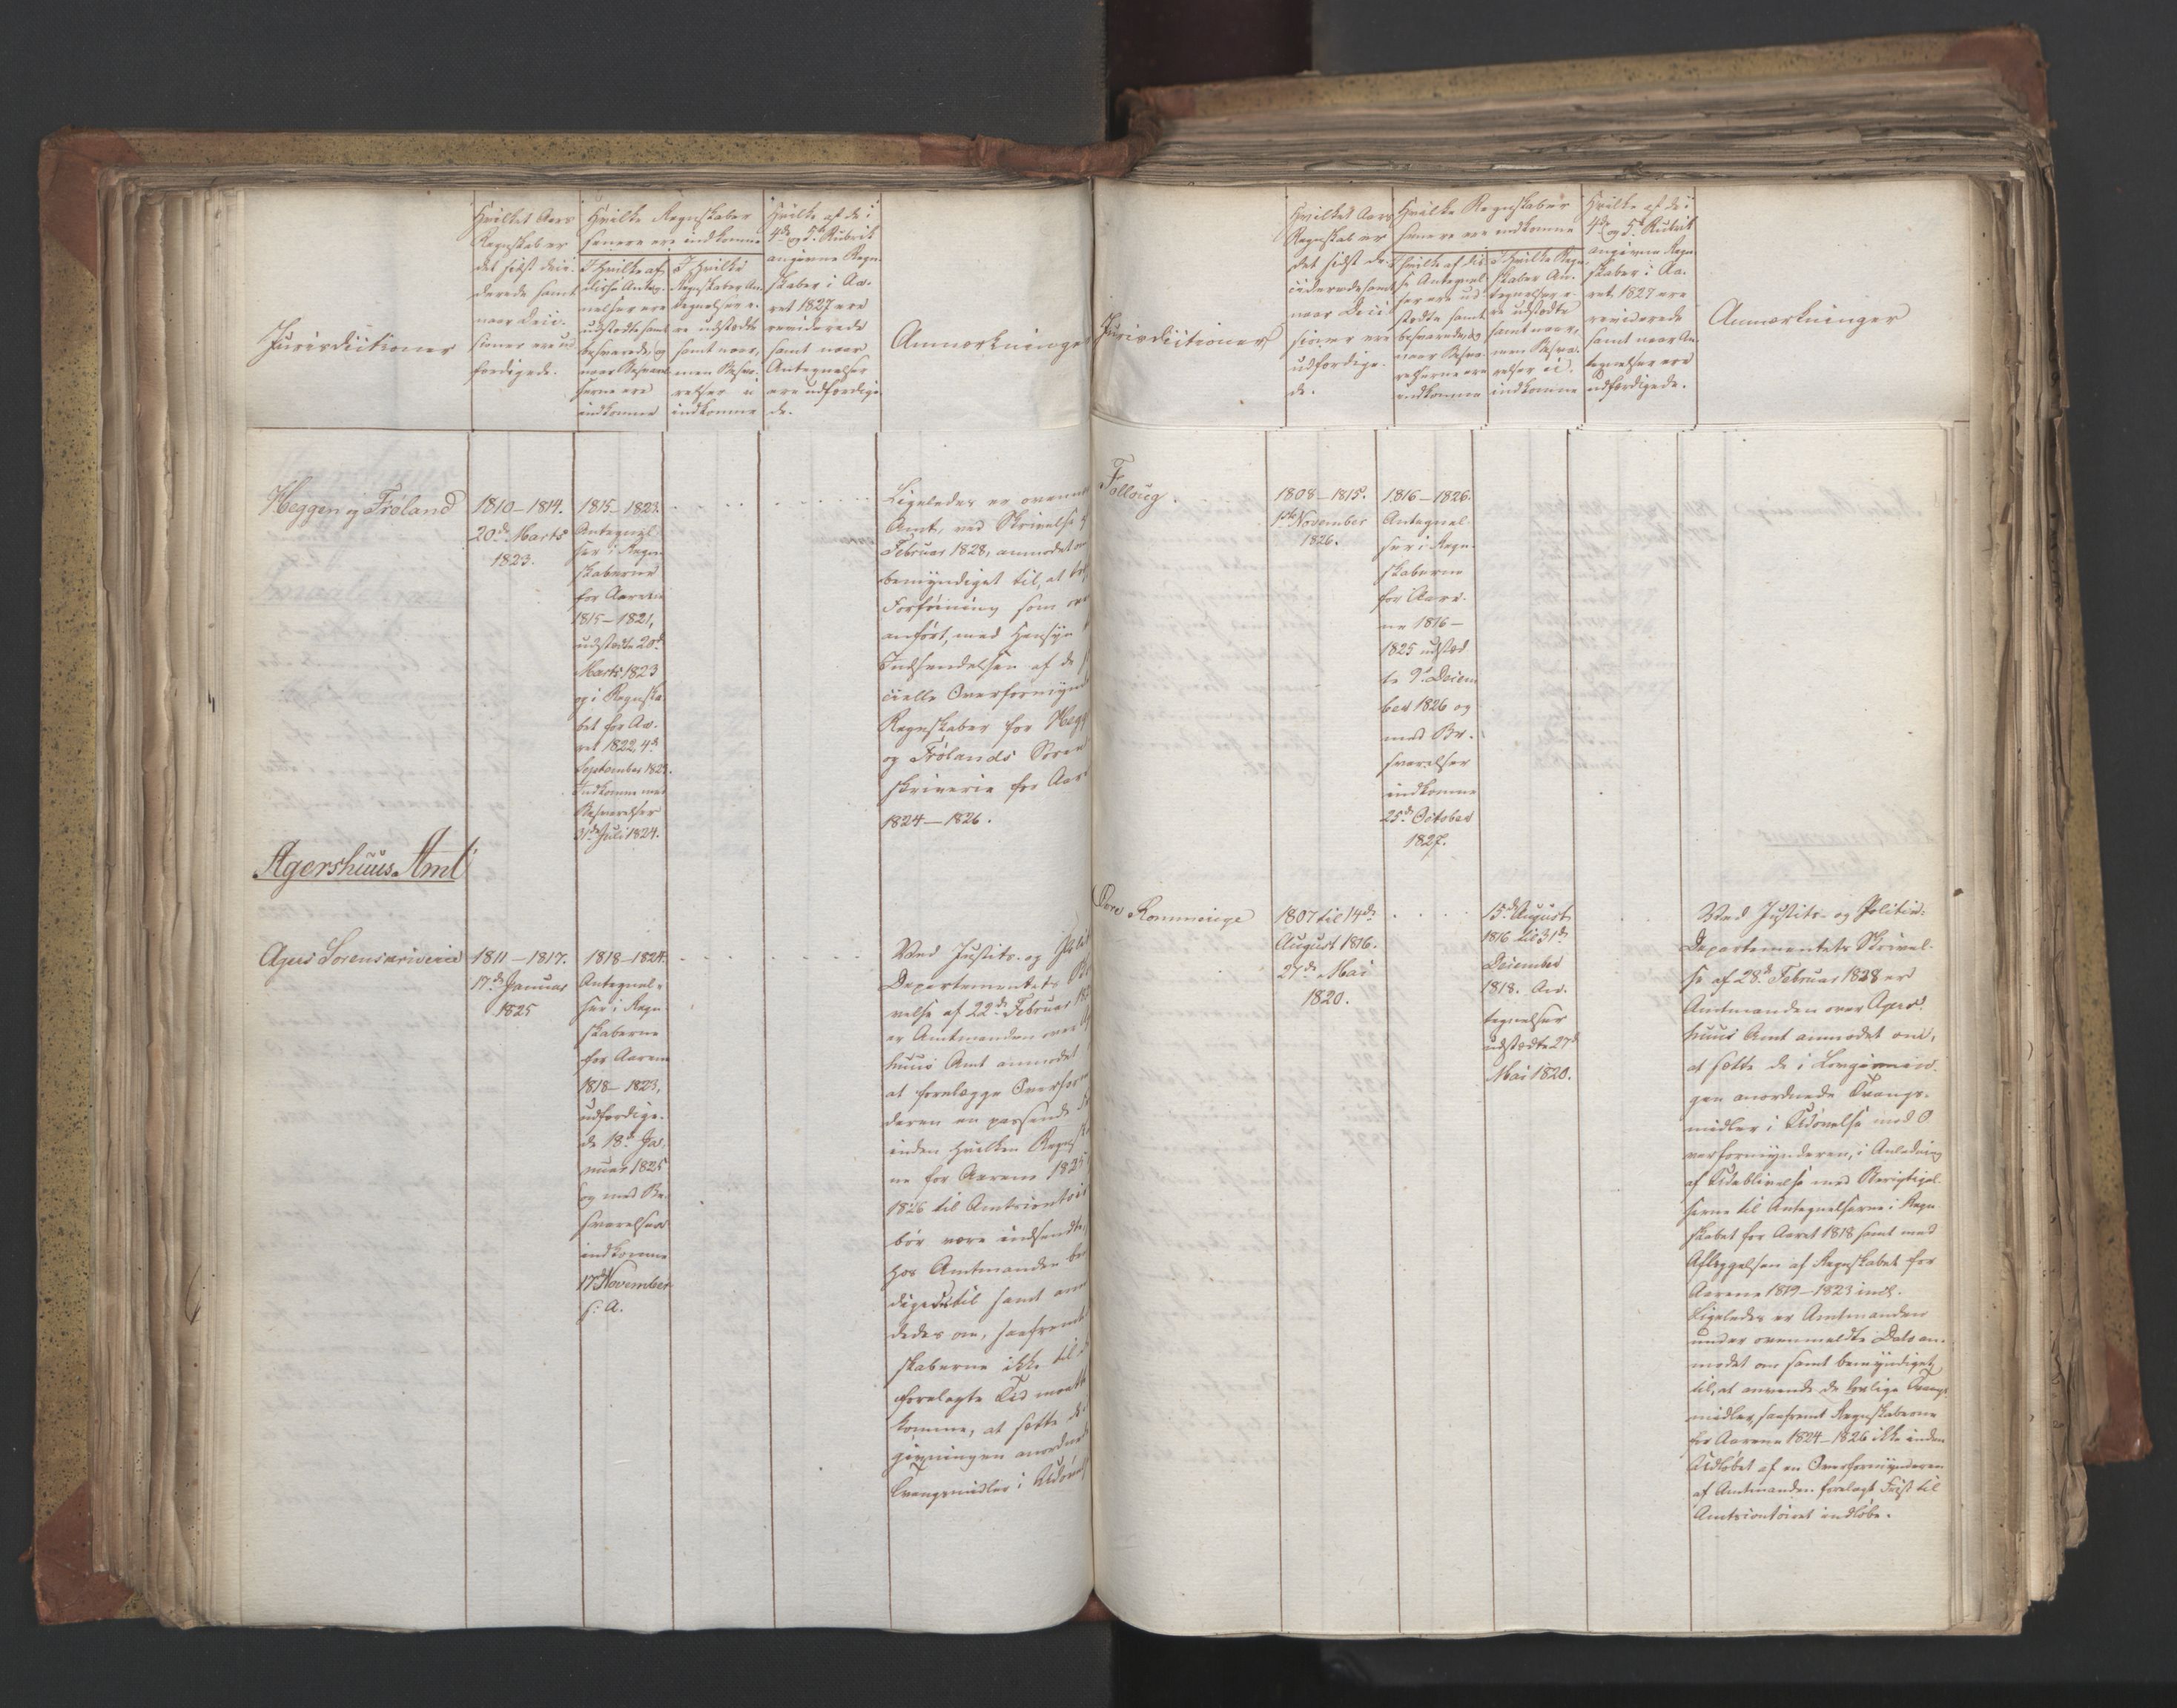 Jurisdictioner
Hvilket Aars
Regnskab er
det sidst deci-
derede samt
naar Deci-
sioner ere ud
færdigede.
Hvilke Regnskaber
senere ere indkomne
I Hvilke af
disse Anteg-
nelser ere
udstædte samt
besvarede, og
naar Besvarel
serne ere
indkomne
I Hvilke
Regnskaber An-
tegnelser e-
re udstædte
samt naar,
men Besva-
relser ei
indkomne
Hvilke af de i
4de og 5te Rubrik
angivne Regn-
skaber i Aa-
ret 1827 ere
reviderede
samt naar
Antegnelser
ere udfærdige-
de.
Anmærkninger
Heggen og Frøland
1810–1814.
20de Marts
1823.
1815–1823.
Antegnel-
ser i Regn-
skaberne
for Aarene
1815–1821,
udstædte 20de
Marts 1823
og i Regnska-
bet for Aa-
ret 1822, 4de
September 1823.
Indkomne med
Besvarelser
31de Juli 1824.
Ligeledes er ovennæ
Amt, ved Skrivelse af
Februar 1828, anmodet om
bemyndiget til, at
Forføining som ov
anført, med Hensyn
Indsendelsen af de
cielle Overformynd
Regnskaber for Hegg
og Frølands Soren
skriverie for Aar
1824–1826.
Agershuus Amt
Agers Sorenskriverie
1811–1817.
17de Januar
1825
1818–1824.
Antegnel-
ser i Regn
skaberne
for Aarene
1818–1823,
udfærdige-
de 18de Ja-
nuar 1825
og med Be-
svarelser
indkomne
17de November
s: A.
Ved Justits- og Polit
Departementets
velse af 22de Februar
er Amtmanden over
huus Amt anmodet
at forelægge Overfor
deren en passende
inden hvilken Regnsk
ne for Aarene 1825
1826 til Amtscontoir
bør være indsendte,
hos Amtmanden be
diges til samt anm
dedes om, saafremt
skaberne ikke til
forelagte Tid maatte
komme, at sætte de
givningen anordnede
Tvangsmidler i Udøvelse
Jurisdictioner
Hvilket Aars
Regnskab er
det sidst de-
ciderede samt
naar Deci-
sioner ere
udfærdige-
de.
Hvilke Regnskaber
senere ere indkomne
I Hvilke af dis-
se Antegnel
ser ere ud-
stædte samt
besvarede, og
naar Besva-
relserne ere
indkomne
I Hvilke Regn-
skaber An-
tegnelser e-
re udstædte
samt naar,
men Besva-
relser ei
indkomne
Hvilke af de i
4de og 5te Rubrik
angivne Regn-
skaber i Aa-
ret 1827 ere
reviderede
samt naar An
tegnelser ere
udfærdigede.
Anmærkninger
Follong
1808–1815.
1ste November
1826.
1816–1826.
Antegnel-
ser i Regn-
skaberne
for Aare-
ne 1816–
1825 udstæd
te 9de Decem
ber 1826 og
med Be-
svarelser
indkomne
25de October
1827.
Øvre Rommerige
1807 til 14de
August 1816.
27de Mai
1820.
15de August
1816 til 31te
December
1818. An-
tegnelser
udstædte 27de
Mai 1820.
Ved Justits- og Politie-
Departementets Skrivel-
se af 28de Februar 1828 er
Amtmanden over Agers-
huus Amt anmodet om,
at sætte de i Lovgivnin-
gen anordnede Tvangs-
midler i Udøvelse mod O
verformynderen, i Anledning
af Udeblivelse med Berigtigel-
serne til Antegnelserne i Regn
skabet for Aaret 1818 samt med
Aflæggelsen af Regnskabet for
Aarene 1819–1823 incl.
Ligeledes er Amtmanden
under ovenmeldte Dato an-
modet om samt bemyndiget
til, at anvende de lovlige Tvangs
midler, saafremt Regnskaberne
for Aarene 1824–1826 ikke inden
Udløbet af en Overformynderen
af Amtmanden forelagt Frist til
Amtscontoiret indløbe.